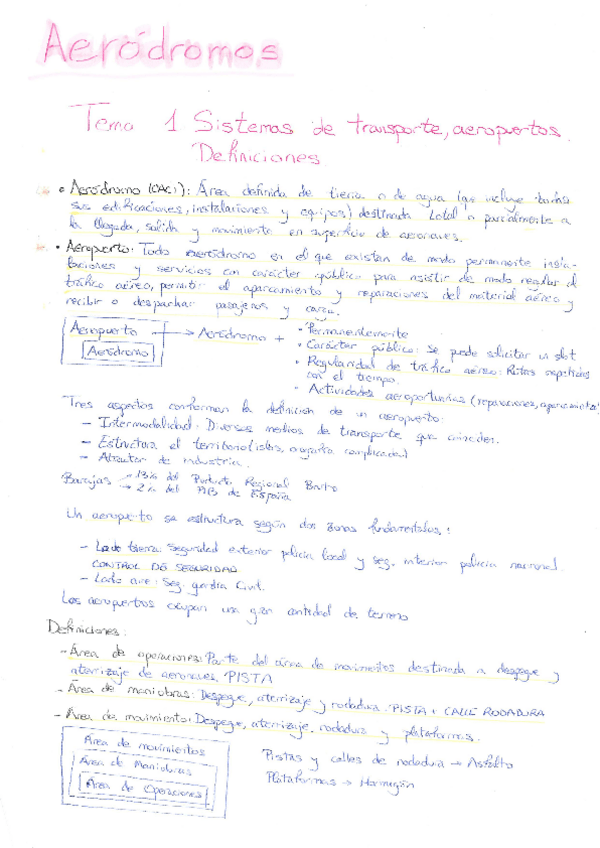 Aeródromos
Tema 1 Sistemas de transporte, aeropuertos.
Definiciones
• Aeródromo (OACI): Área definida de tierra o de agua (que incluye todas
sus edificaciones, instalaciones y equipos) destinada total o parcialmente a
la llegada, salida y movimiento en superficie de aeronaves.
• Aeropuerto: Todo aeródromo en el que existan de modo permanente insta-
laciones y servicios con carácter público para asistir de modo regular al
tráfico aéreo, permitir el aparcamiento y reparaciones del material aéreo y
recibir o despachar pasajeros y carga.
Aeropuerto → Aeródromo +
Aeródromo
• Permanentemente
• Carácter público: Se puede solicitar un slot
• Regularidad de tráfico aéreo: Rutas repetidas
con el tiempo.
• Actividades aeroportuarias (reparaciones, aparcamiento)
Tres aspectos conforman la definición de un aeropuerto:
- Intermodalidad: Diversos medios de transporte que coinciden.
- Estructura el territorio (islas, complicada)
- Atractor de industria.
Barajas → 13% del Producto Regional Bruto
→ 2% del PIB de España
Un aeropuerto se estructura según dos zonas fundamentales:
- Lado tierra: Seguridad exterior policía local y seg. interior policía nacional.
CONTROL DE SEGURIDAD
- Lado aire: Seg. guardia Civil.
Los aeropuertos ocupan una gran cantidad de terreno
Definiciones:
- Área de operaciones: Parte del área de movimientos destinada a despegue y
aterrizaje de aeronaves. PISTA
- Área de maniobras: Despegue, aterrizaje y rodadura. PISTA + CALLE RODADURA
- Área de movimiento: Despegue, aterrizaje, rodadura y plataformas.
Área de movimientos
Área de Maniobras
Área de Operaciones
Pistas y calles de rodadura → Asfalto
Plataformas → Hormigón